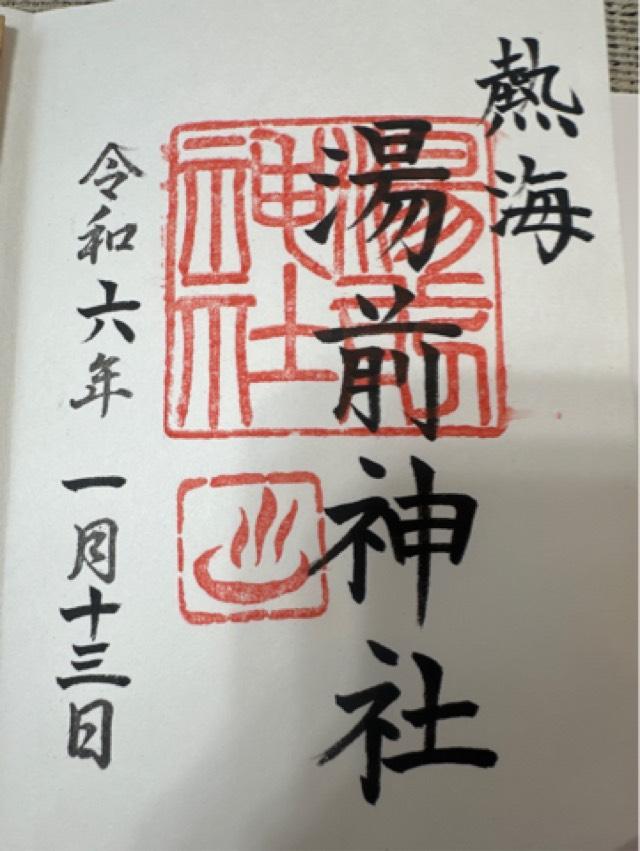 熱海
湯前神社
湯前
神社
令和六年 一月十三日